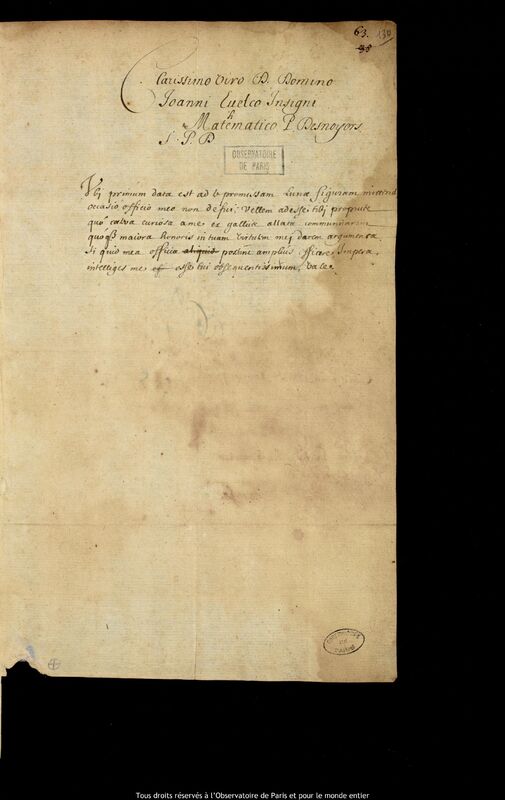 63. 130
38
Clarissimo Viro D. Domino
Joanni Evelco Insigni
Matematico P Desnoyers
S. P. D
OBSERVATOIRE
DE PARIS
Ubi primum data est ad te promissam Lunæ figuram mittend
occasio officio meo non defui; Vellem adesset tibi
quo catera curiosa a me ex gallia allata communicarem
maiora honoris in tuam virtutem mei darem argumenta
si quid mea officia aliquid possunt amplius efficere, Impera,
intelliges me esse tui obsequentissimum, Vale.
OBSERVATOIRE
DE
PARIS
Tous droits réservés à l'Observatoire de Paris et pour le monde entier